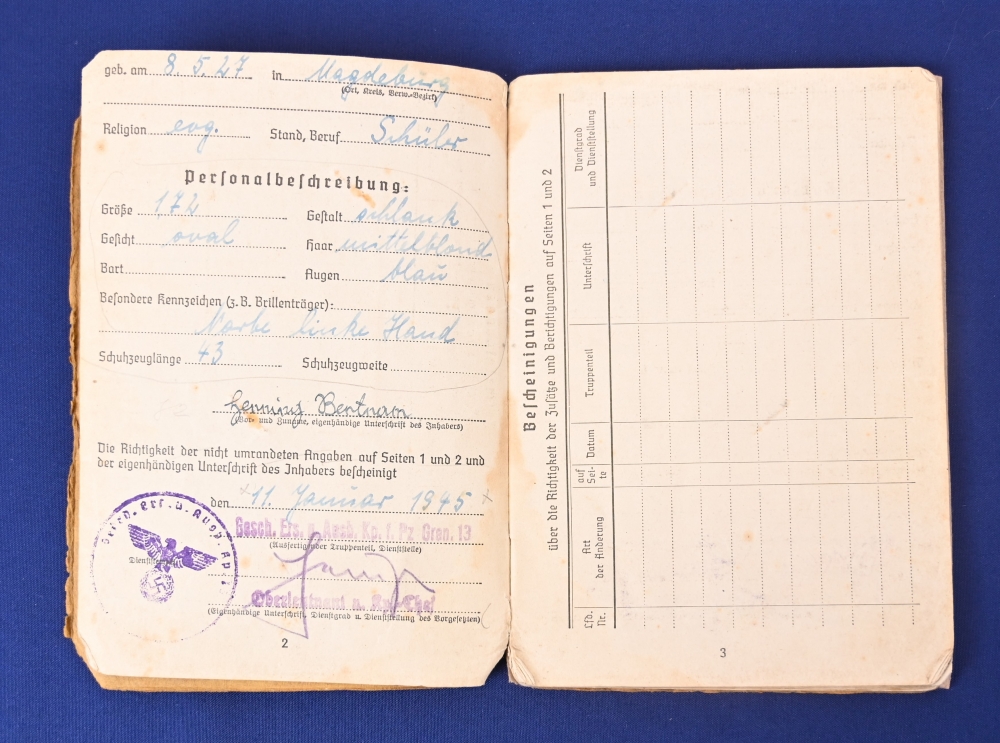 geb. am 8. 5. 27 in Magdeburg
(Ort, Kreis, Verw.-Bezirk)
Religion evg. Stand, Beruf Schüler
Personalbeschreibung:
Größe 1,72 Gestalt schlank
Gesicht oval Haar mittelblond
Bart Augen blau
Besondere Kennzeichen (z.B. Brillenträger):
Narbe linke Hand
Schuhzeuglänge 43 Schuhzeugweite
Henning
(Vor- und Zuname, eigenhändige Unterschrift des Inhabers)
Die Richtigkeit der nicht umrandeten Angaben auf Seiten 1 und 2 und
der eigenhändigen Unterschrift des Inhabers bescheinigt
den 11. Januar 1945
Gesch. Ers. u. Ausb. Kp. f. Pz Gren. 13
(Ausfertigender Truppenteil, Dienststelle)
Oberleutnant u. Kp.-Chef
(Eigenhändige Unterschrift, Dienstgrad u. Dienststellung des Vorgesetzten)
2
Bescheinigungen
über die Richtigkeit der Zusätze und Berichtigungen auf Seiten 1 und 2
Lfd. Nr.
Art der Änderung
auf Sei-te
Datum
Truppenteil
Unterschrift
Dienstgrad und Dienststellung
3